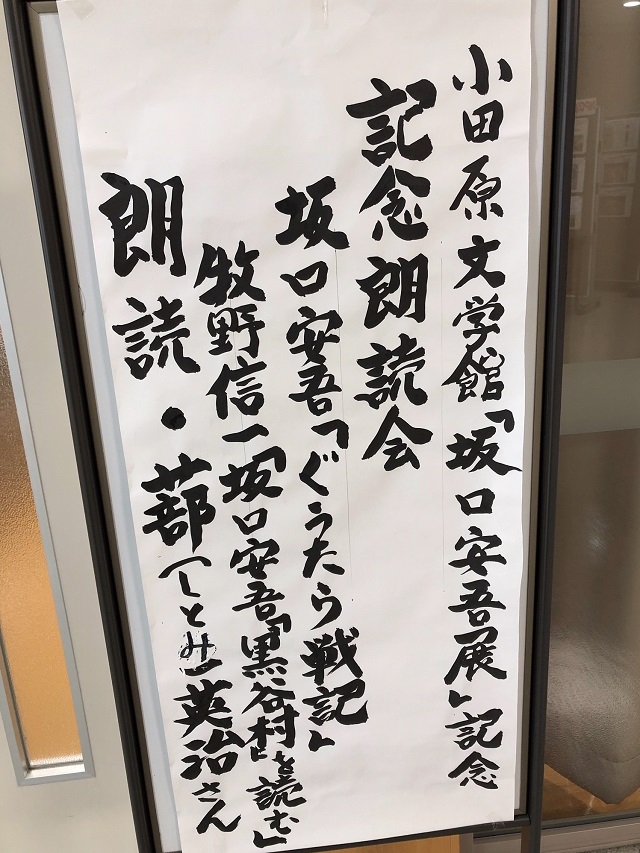 小田原文学館「坂口安吾展」記念
記念朗読会
坂口安吾「ぐうたら戦記」
牧野信一「坂口安吾『黒谷村』を読む」
朗読・蔀(しとみ)英治さん